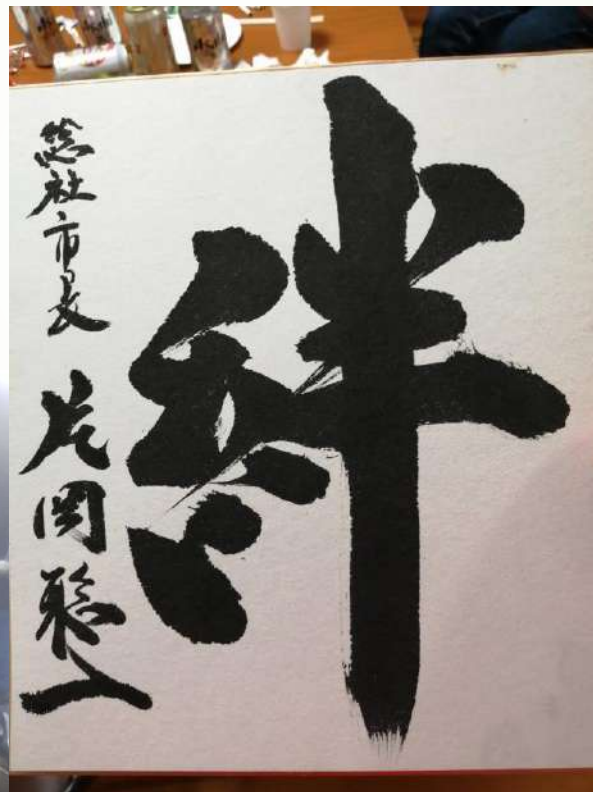 絆
総社市長 片岡聡一